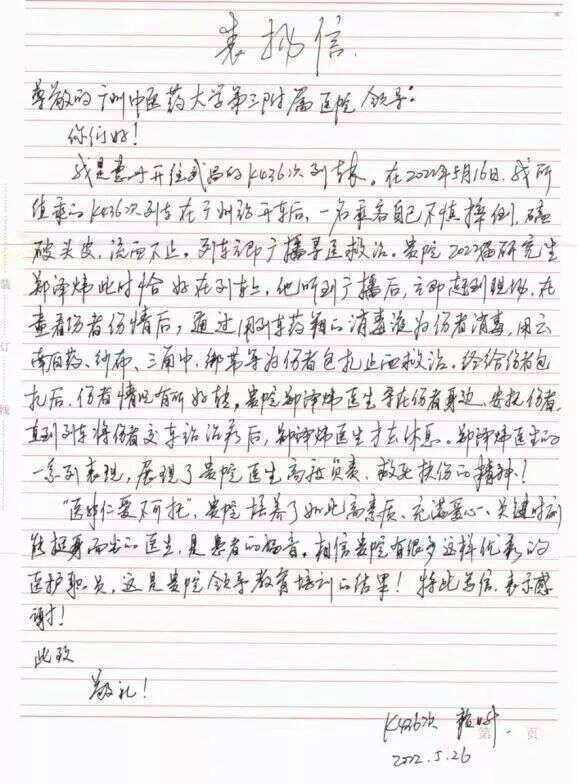 表扬信
尊敬的广州中医药大学第三附属医院领导:
你们好!
我是惠州开往武昌的K436次列车长。在2022年5月16日,我所
值乘的K436次列车在广州站开车后,一名乘客自己不慎摔倒,磕
破头皮,流血不止。列车立即广播寻医救治。贵院2022届研究生
郑泽炜此时恰好在列车上,他听到广播后,立即赶到现场,在
查看伤者伤情后,通过用列车药箱的消毒液为伤者消毒,用云
南白药、纱布、三角巾、绷带等为伤者包扎止血救治。经给伤者包
扎后,伤者情况有所好转。贵院郑泽炜医生守在伤者身边,安抚伤者,
直到列车将伤者交车站治疗后,郑泽炜医生才去休息。郑泽炜医生的
一系列表现,展现了贵院医生高度负责、救死扶伤的精神!
“医者仁爱不可托”,贵院培养了如此高素质、充满爱心、关键时刻
能挺身而出的医生,是患者的福音。相信贵院有很多这样优秀的
医护职员,这是贵院领导教育培训的结果!特此写信,表示感
谢!
此致
敬礼!
K436次
2022.5.26
第 页
装
订
线